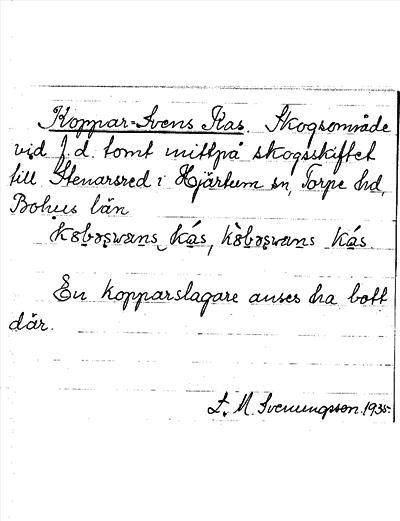 Koppar-Svens Ras. Skogsområde
vid f.d. tomt mittpå skogsskiftet
till Stenarsred i Hjärtum sn, Torpe hd,
Bohus län
En kopparslagare anses ha bott
där.
L. M. Svenungsson. 1935.